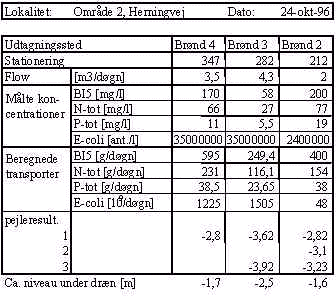 Lokalitet: Område 2, Herningvej Dato: 24-okt-96
Udtagningssted Brønd 4 Brønd 3 Brønd 2
Stationering 347 282 212
Flow [m3/døgn] 3,5 4,3 2
Målte kon- BI5 [mg/l] 170 58 200
centrationer N-tot [mg/l] 66 27 77
P-tot [mg/l] 11 5,5 19
E-coli [ant./l] 35000000 35000000 2400000
Beregnede BI5 [g/døgn] 595 249,4 400
transporter N-tot [g/døgn] 231 116,1 154
P-tot [g/døgn] 38,5 23,65 38
E-coli [10/døgn] 1225 1505 48
pejleresult.
1 -2,8 -3,62 -2,82
2 -3,1
3 -3,92 -3,23
Ca. niveau under dræn [m] -1,7 -2,5 -1,6